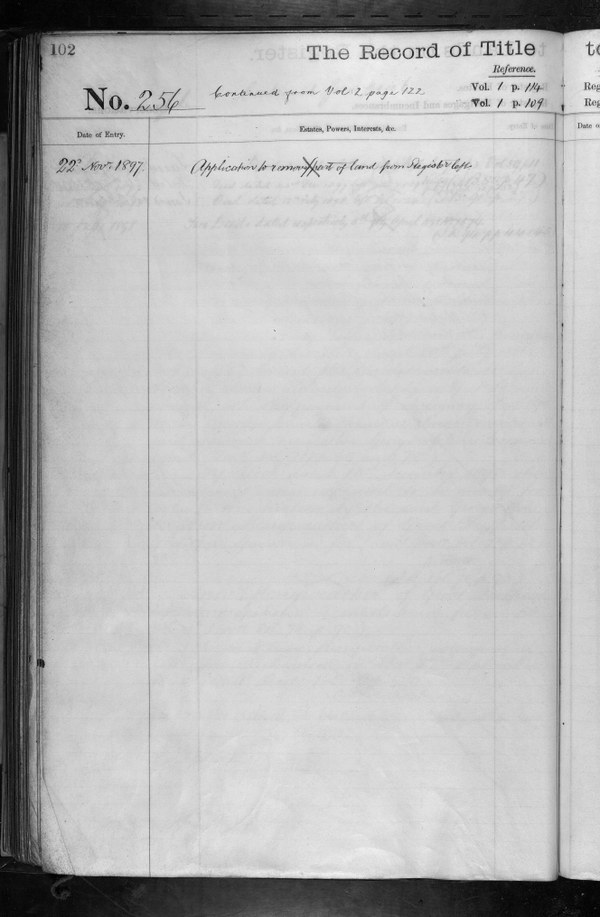 102
The Record of Title
Reference.
No. 256 Continued from Vol 2 page 122 Vol. 1 p. 114
Vol. 1 p. 109
Date of Entry. Estates, Powers, Interests, &c.
22d Novr. 1897. Application to remove part of land from Register left.
to
Reg
Reg
Date o